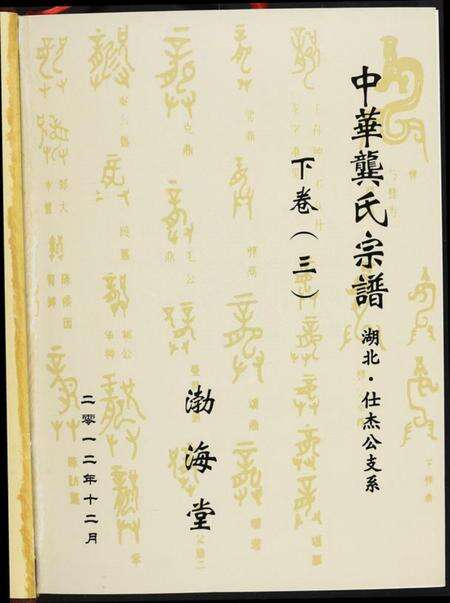 中華龔氏宗譜
湖北·仕杰公支系
下卷（三）
渤海堂
二零一二年十二月